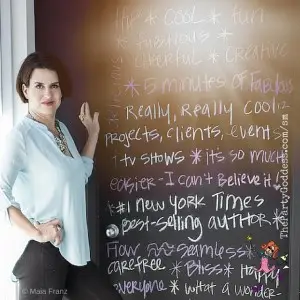 life * cool * fun
* colorful * creative
* 5 minutes of Fabulous
Really, Really cool
projects, clients, events
! tv shows * it's so much
easier - I can't Believe it!
#1 New York Times
Best-selling author *
Flow seamless *
carefree * Bliss * Happy
everyone * what a wonder
ThePartyGoddess.com/sm
© Maia Franz